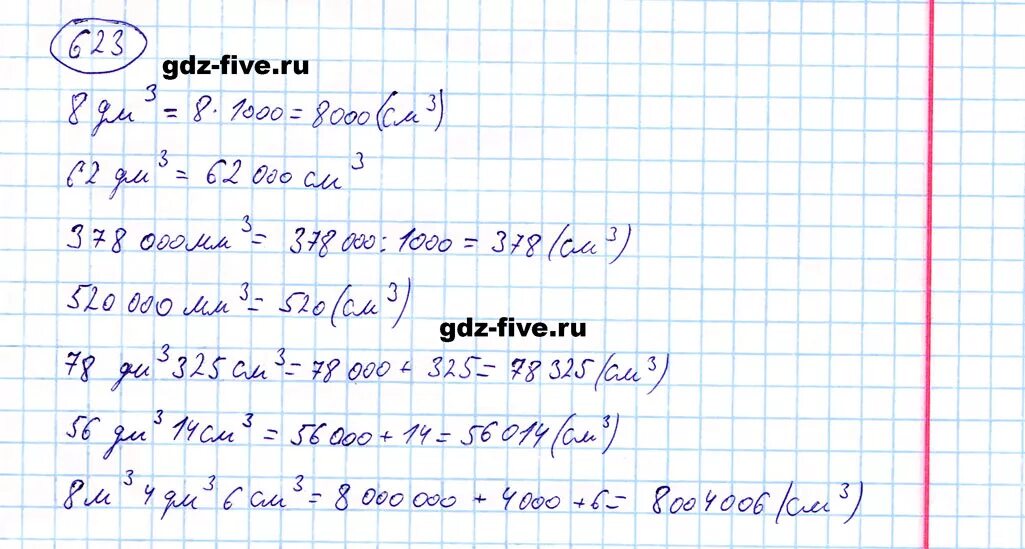 623
gdz-five.ru
8 дм³ = 8 · 1000 = 8000 (см³)
62 дм³ = 62 000 см³
378 000 мм³ = 378 000 : 1000 = 378 (см³)
520 000 мм³ = 520 (см³)
gdz-five.ru
78 дм³ 325 см³ = 78 000 + 325 = 78 325 (см³)
56 дм³ 14 см³ = 56 000 + 14 = 56 014 (см³)
8 м³ 4 дм³ 6 см³ = 8 000 000 + 4000 + 6 = 8 004 006 (см³)